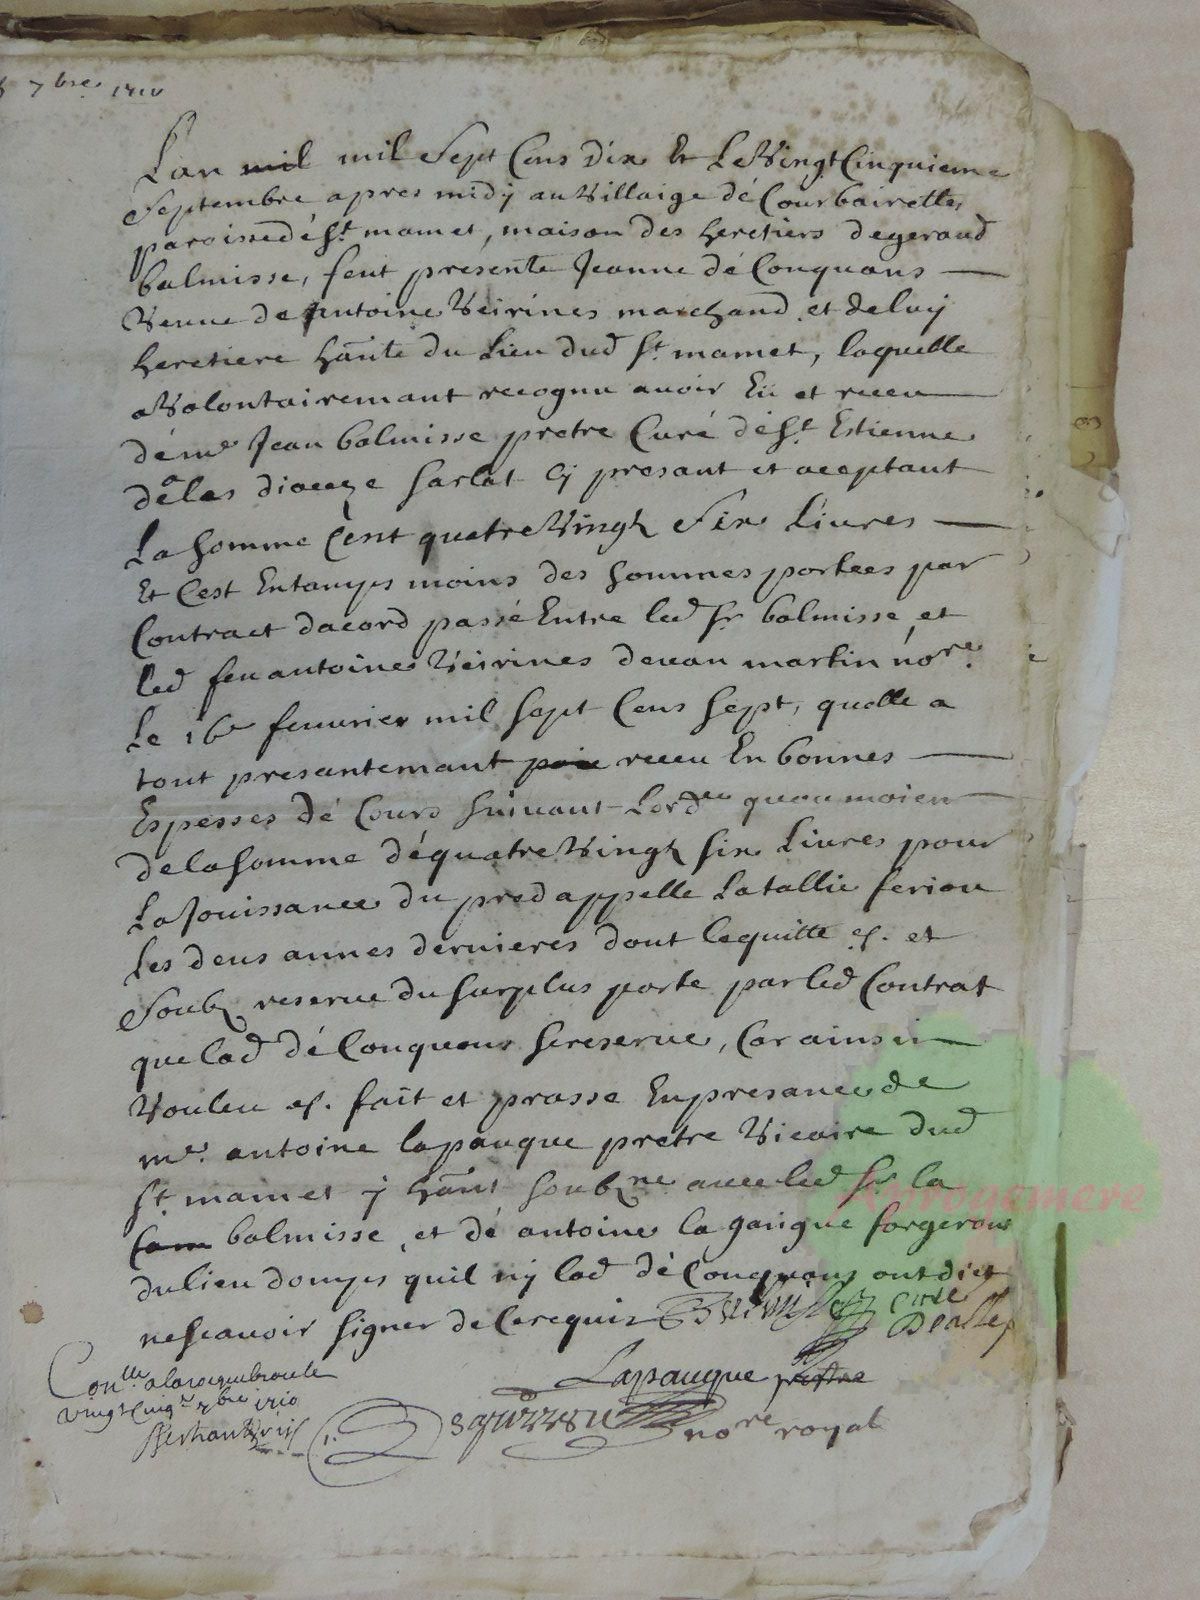 7bre 1710
Lan mil mil sept Cens dix Et Le Vingt Cinquieme
Septembre apres midy au Villaige dé Courbairettes
paroisse dé St mamet, maison des heretiers de geraud
balmisse, feut presente Jeanne dé Conquans
Veuve de Antoine Veirines marchand et de luy
heretiere hante du Lieu dud St mamet, laquelle
a Volontairemant recognu avoir Eü et receu
dé me Jean balmisse pretre Curé dé St Estienne
dé las dioceze sarlat Cy presant et aceptant
La somme Cent quatre Vingt Six Livres
Et Cest Entamps moins des sommes portees par
Contract dacord passé Entre led Sr balmisse et
led feu antoine Veirines devan martin nore.
Le 16e fevurier mil sept Cens sept, quelle a
tout presantemant receu En bonnes
Espesses dé Cours suivant Lordce quau moien
de la somme dé quatre Vingt six Livres pour
La Jouissance du pred appelle La tallie feriou
Les deus annes dernieres dont lequitte &. et
Soubz reserve du surplus porte par led Contrat
que lad dé Conquans se reserve, Car ainsii
Vouleu &. fait et prasse En presance de
me. antoine lapauque pretre Vicaire dud
St mamet y hant soubzne avec led Sr la
balmisse, et dé antoine la garigue forgerons
du lieu domps quil ny lad dé Conquans ont dict
ne scavoir signer de Ce requis
curé
Lapauque prestre
nore royal
Conlle a laroquebroule
vingt cinqe 7bre 1710